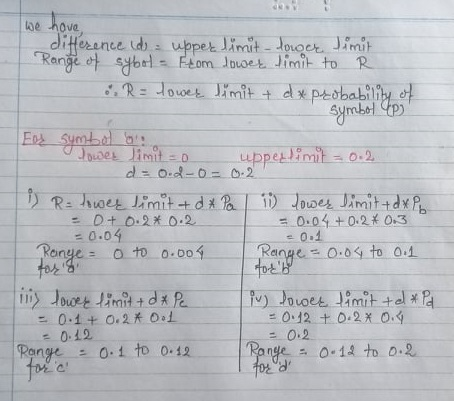 we have,
difference (d) = upper limit - lower limit
Range of sybol = From lower limit to R
∴ R = lower limit + d * probability of
symbol (p)
For symbol 'a':
lower limit = 0    upper limit = 0.2
d = 0.2 - 0 = 0.2
i) R = lower limit + d * Pa
= 0 + 0.2 * 0.2
= 0.04
Range = 0 to 0.004
for 'a'
ii) lower limit + d * Pb
= 0.04 + 0.2 * 0.3
= 0.1
Range = 0.04 to 0.1
for 'b'
iii) lower limit + d * Pc
= 0.1 + 0.2 * 0.1
= 0.12
Range = 0.1 to 0.12
for 'c'
iv) lower limit + d * Pd
= 0.12 + 0.2 * 0.4
= 0.2
Range = 0.12 to 0.2
for 'd'